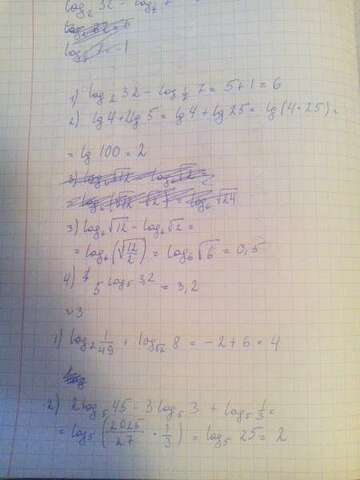 log₂ 32 - log₇
1) log₂ 32 - log 7 = 5+1 = 6
2) lg 4 + 2lg 5 = lg 4 + lg 25 = lg (4·25) =
= lg 100 = 2
3) log₆ √12 - log₆ √2 =
= log₆ (√12/2) = log₆ √6 = 0,5
4) 5^log₅ 3,2 = 3,2
~3
1) log 1/49 + log_√2 8 = -2 + 6 = 4
2) 2 log₅ 45 - 3 log₅ 3 + log₅ 1/3 =
= log₅ (2025/27 · 1/3) = log₅ 25 = 2